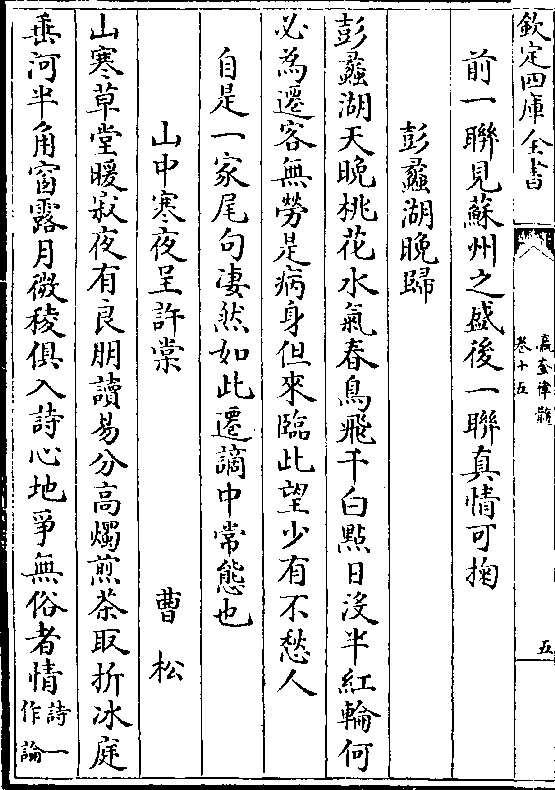 欽定四庫全書
瀛奎律髓
卷十五
五
前一聯見蘇州之盛後一聯真情可掬
彭蠡湖晚歸
彭蠡湖天晚桃花水氣春鳥飛千白點日沒半紅輪何
必為遷客無勞是病身但來臨此望少有不愁人
自是一家尾句淒然如此遷謫中常態也
山中寒夜呈許棠
曹松
山寒草堂暖寂夜有良朋讀易分高燭煎茶取折冰庭
垂河半角窗露月微稜俱入詩心地爭無俗者情詩一
作論